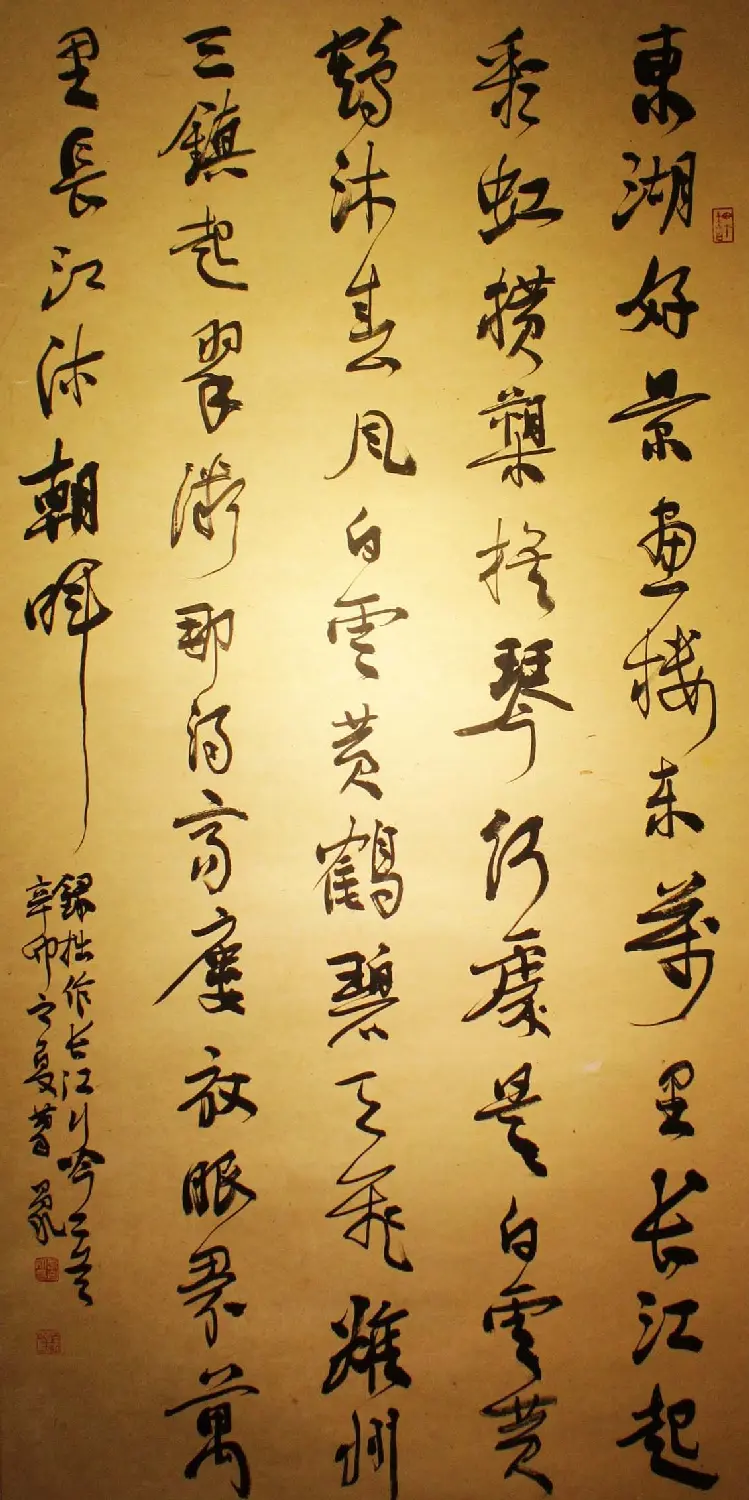 東湖好景畫楼东萬里长江起
彩虹横槊撫琴何處是白雲黄
鶴沐春風白雲黄鶴碧天飛雄州
三鎮起翠微那得高樓放眼界萬
里長江沐朝暉
録拙作长江行吟二首
辛卯之夏